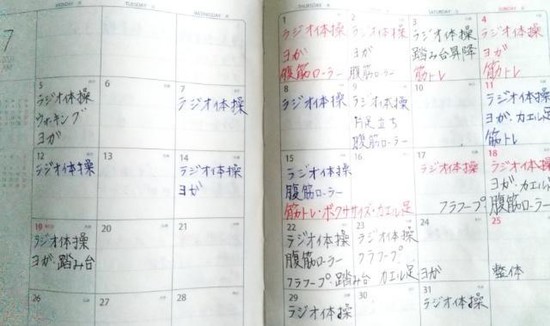 7
MONDAY
TUESDAY
WEDNESDAY
5
ラジオ体操
ウォーキング
ヨガ
6
7
ラジオ体操
12
ラジオ体操
13
14
ラジオ体操
ヨガ
19
ラジオ体操
ヨガ・踏み台
20
21
26
27
28
THURSDAY
SATURDAY
SUNDAY
1
ラジオ体操
ヨガ
腹筋ローラー
2
ラジオ体操
ヨガ
腹筋ローラー
3
ラジオ体操
踏み台昇降
筋トレ
4
ラジオ体操
ヨガ
筋トレ
8
ラジオ体操
9
ラジオ体操
片足立ち
腹筋ローラー
10
11
ラジオ体操
ヨガ・カエル足
筋トレ
15
ラジオ体操
腹筋ローラー
筋トレ・ボクササイズ・カエル足
16
17
ラジオ体操
フラフープ
18
ラジオ体操
ヨガ・カエル足
腹筋ローラー
22
ラジオ体操
腹筋ローラー
フラフープ・踏み台
23
ラジオ体操
フラフープ
カエル足
24
ヨガ
25
整体
29
ラジオ体操
30
31
ラジオ体操